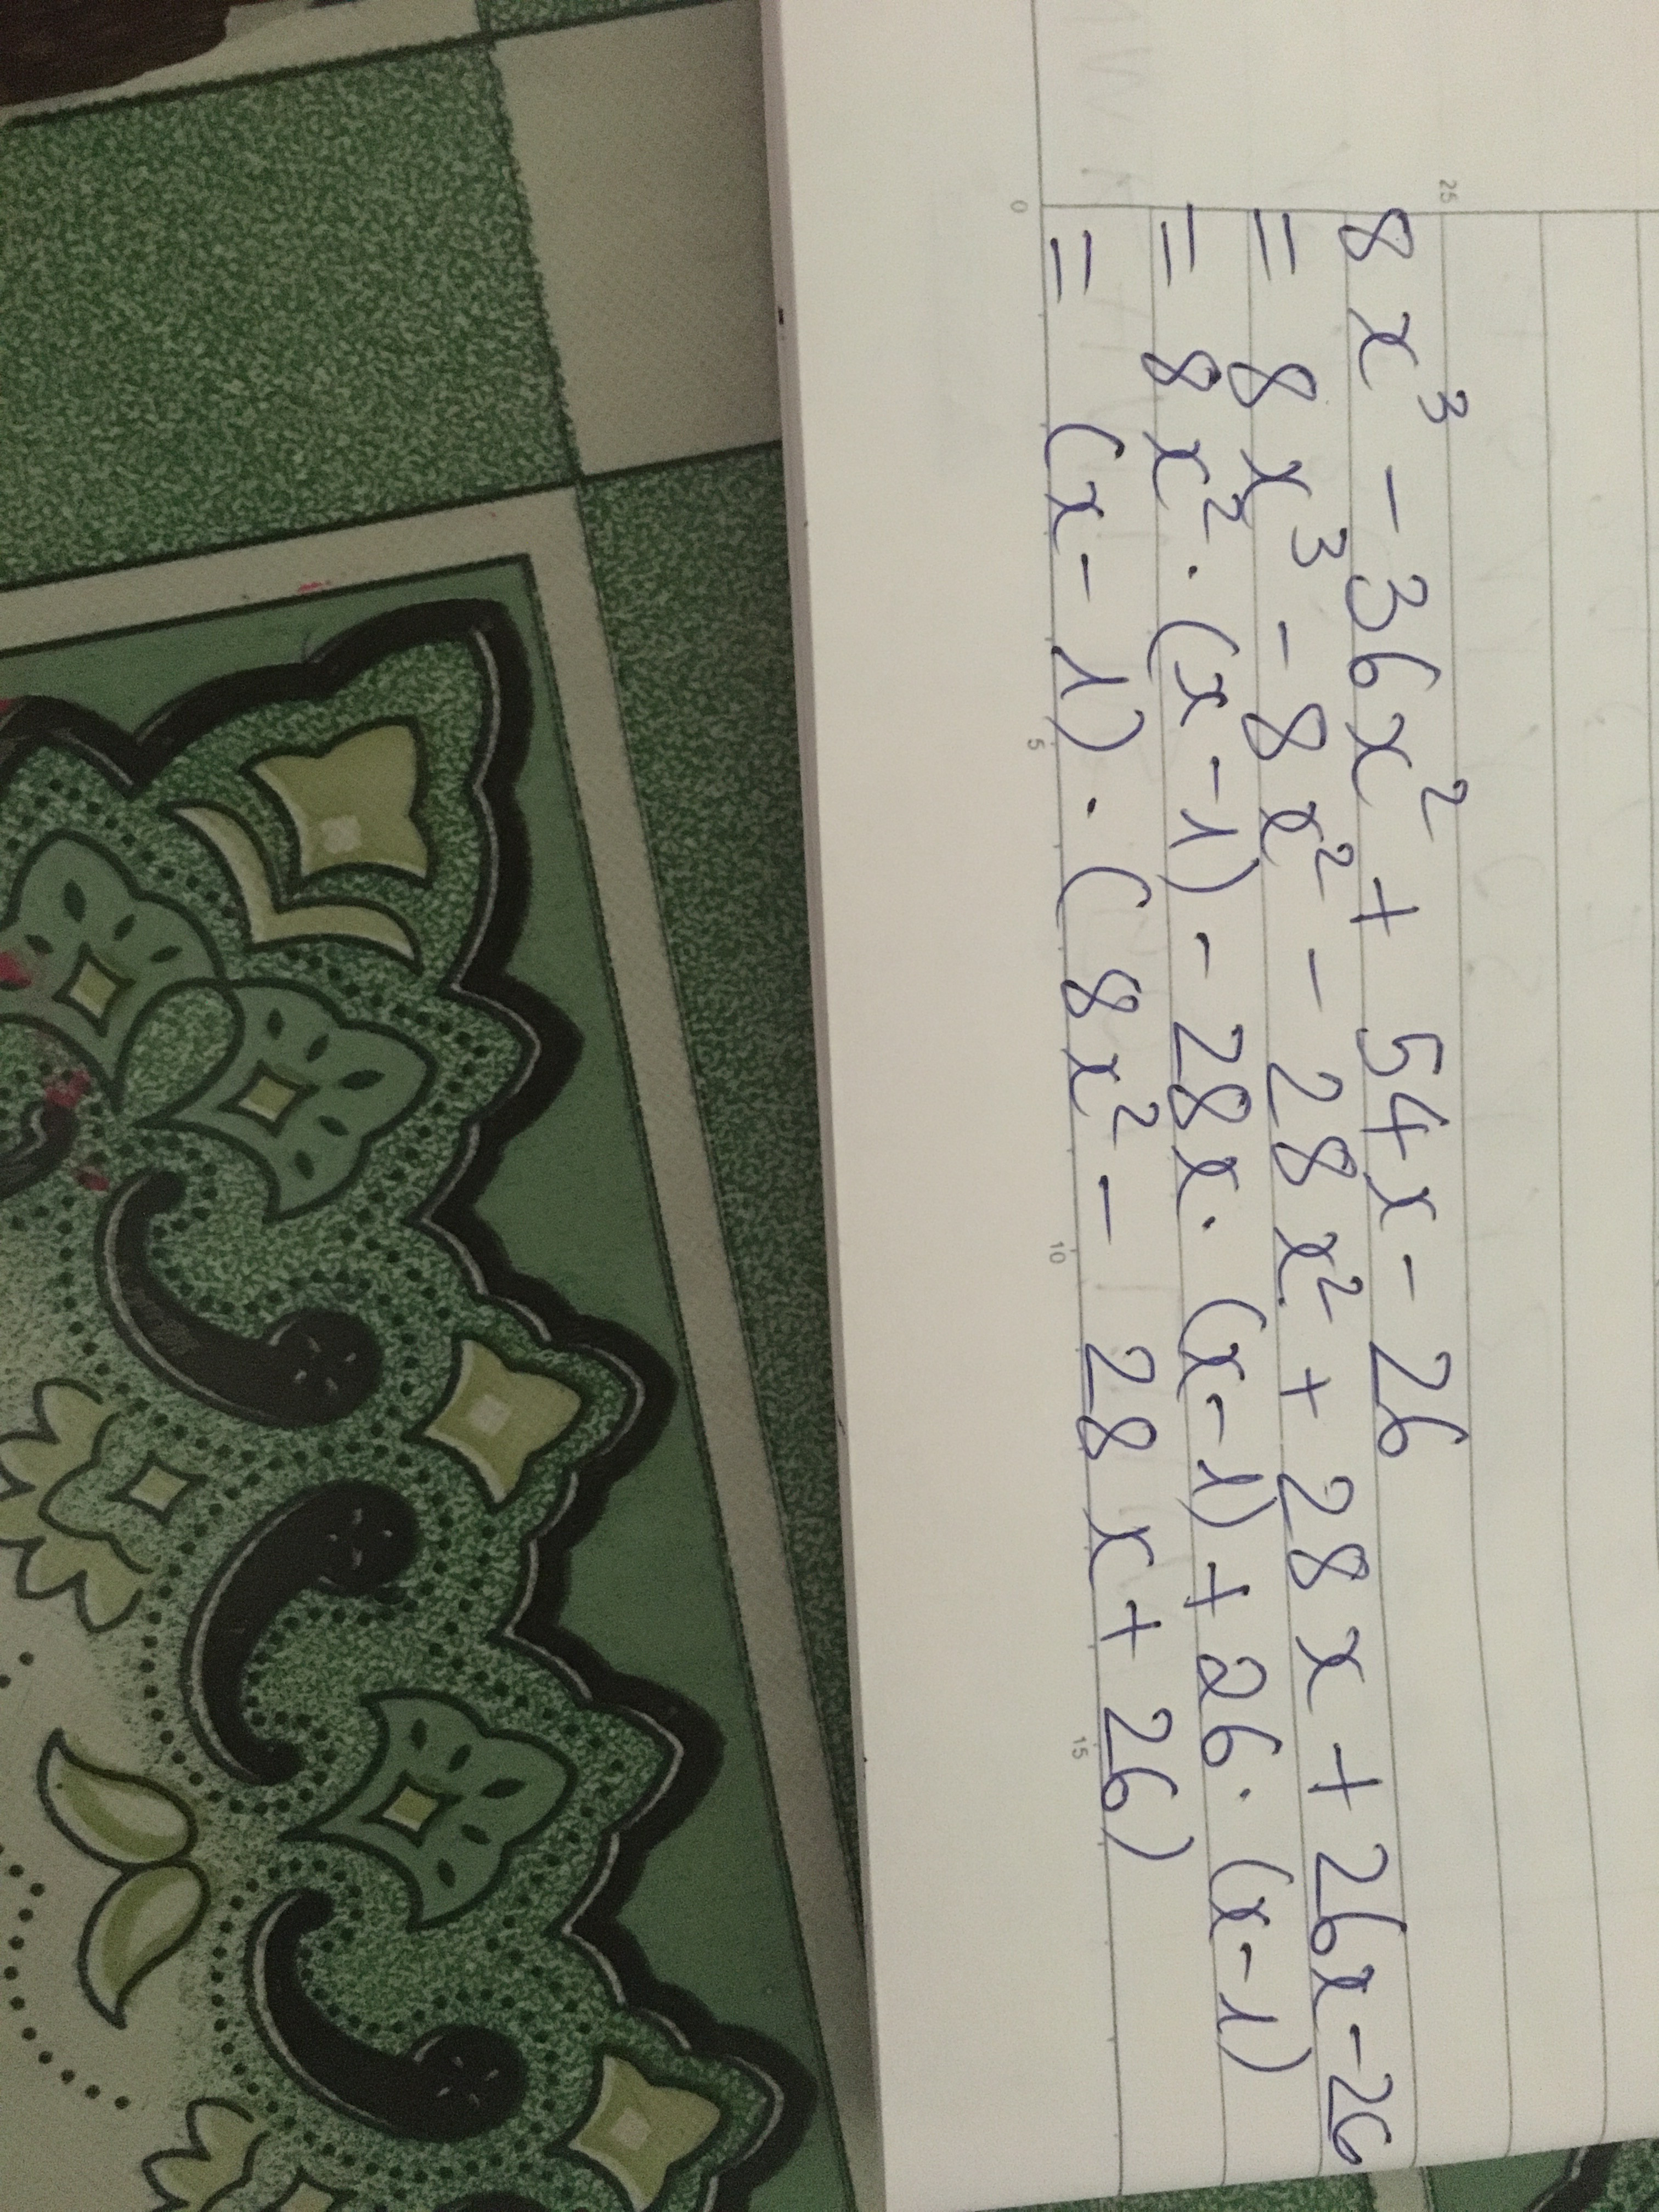 25
8x³ - 36x² + 54x - 26
= 8x³ - 8x² - 28x² + 28x + 26x - 26
= 8x² · (x - 1) - 28x · (x - 1) + 26 · (x - 1)
= (x - 1) · (8x² - 28x + 26)
0 5 10 15